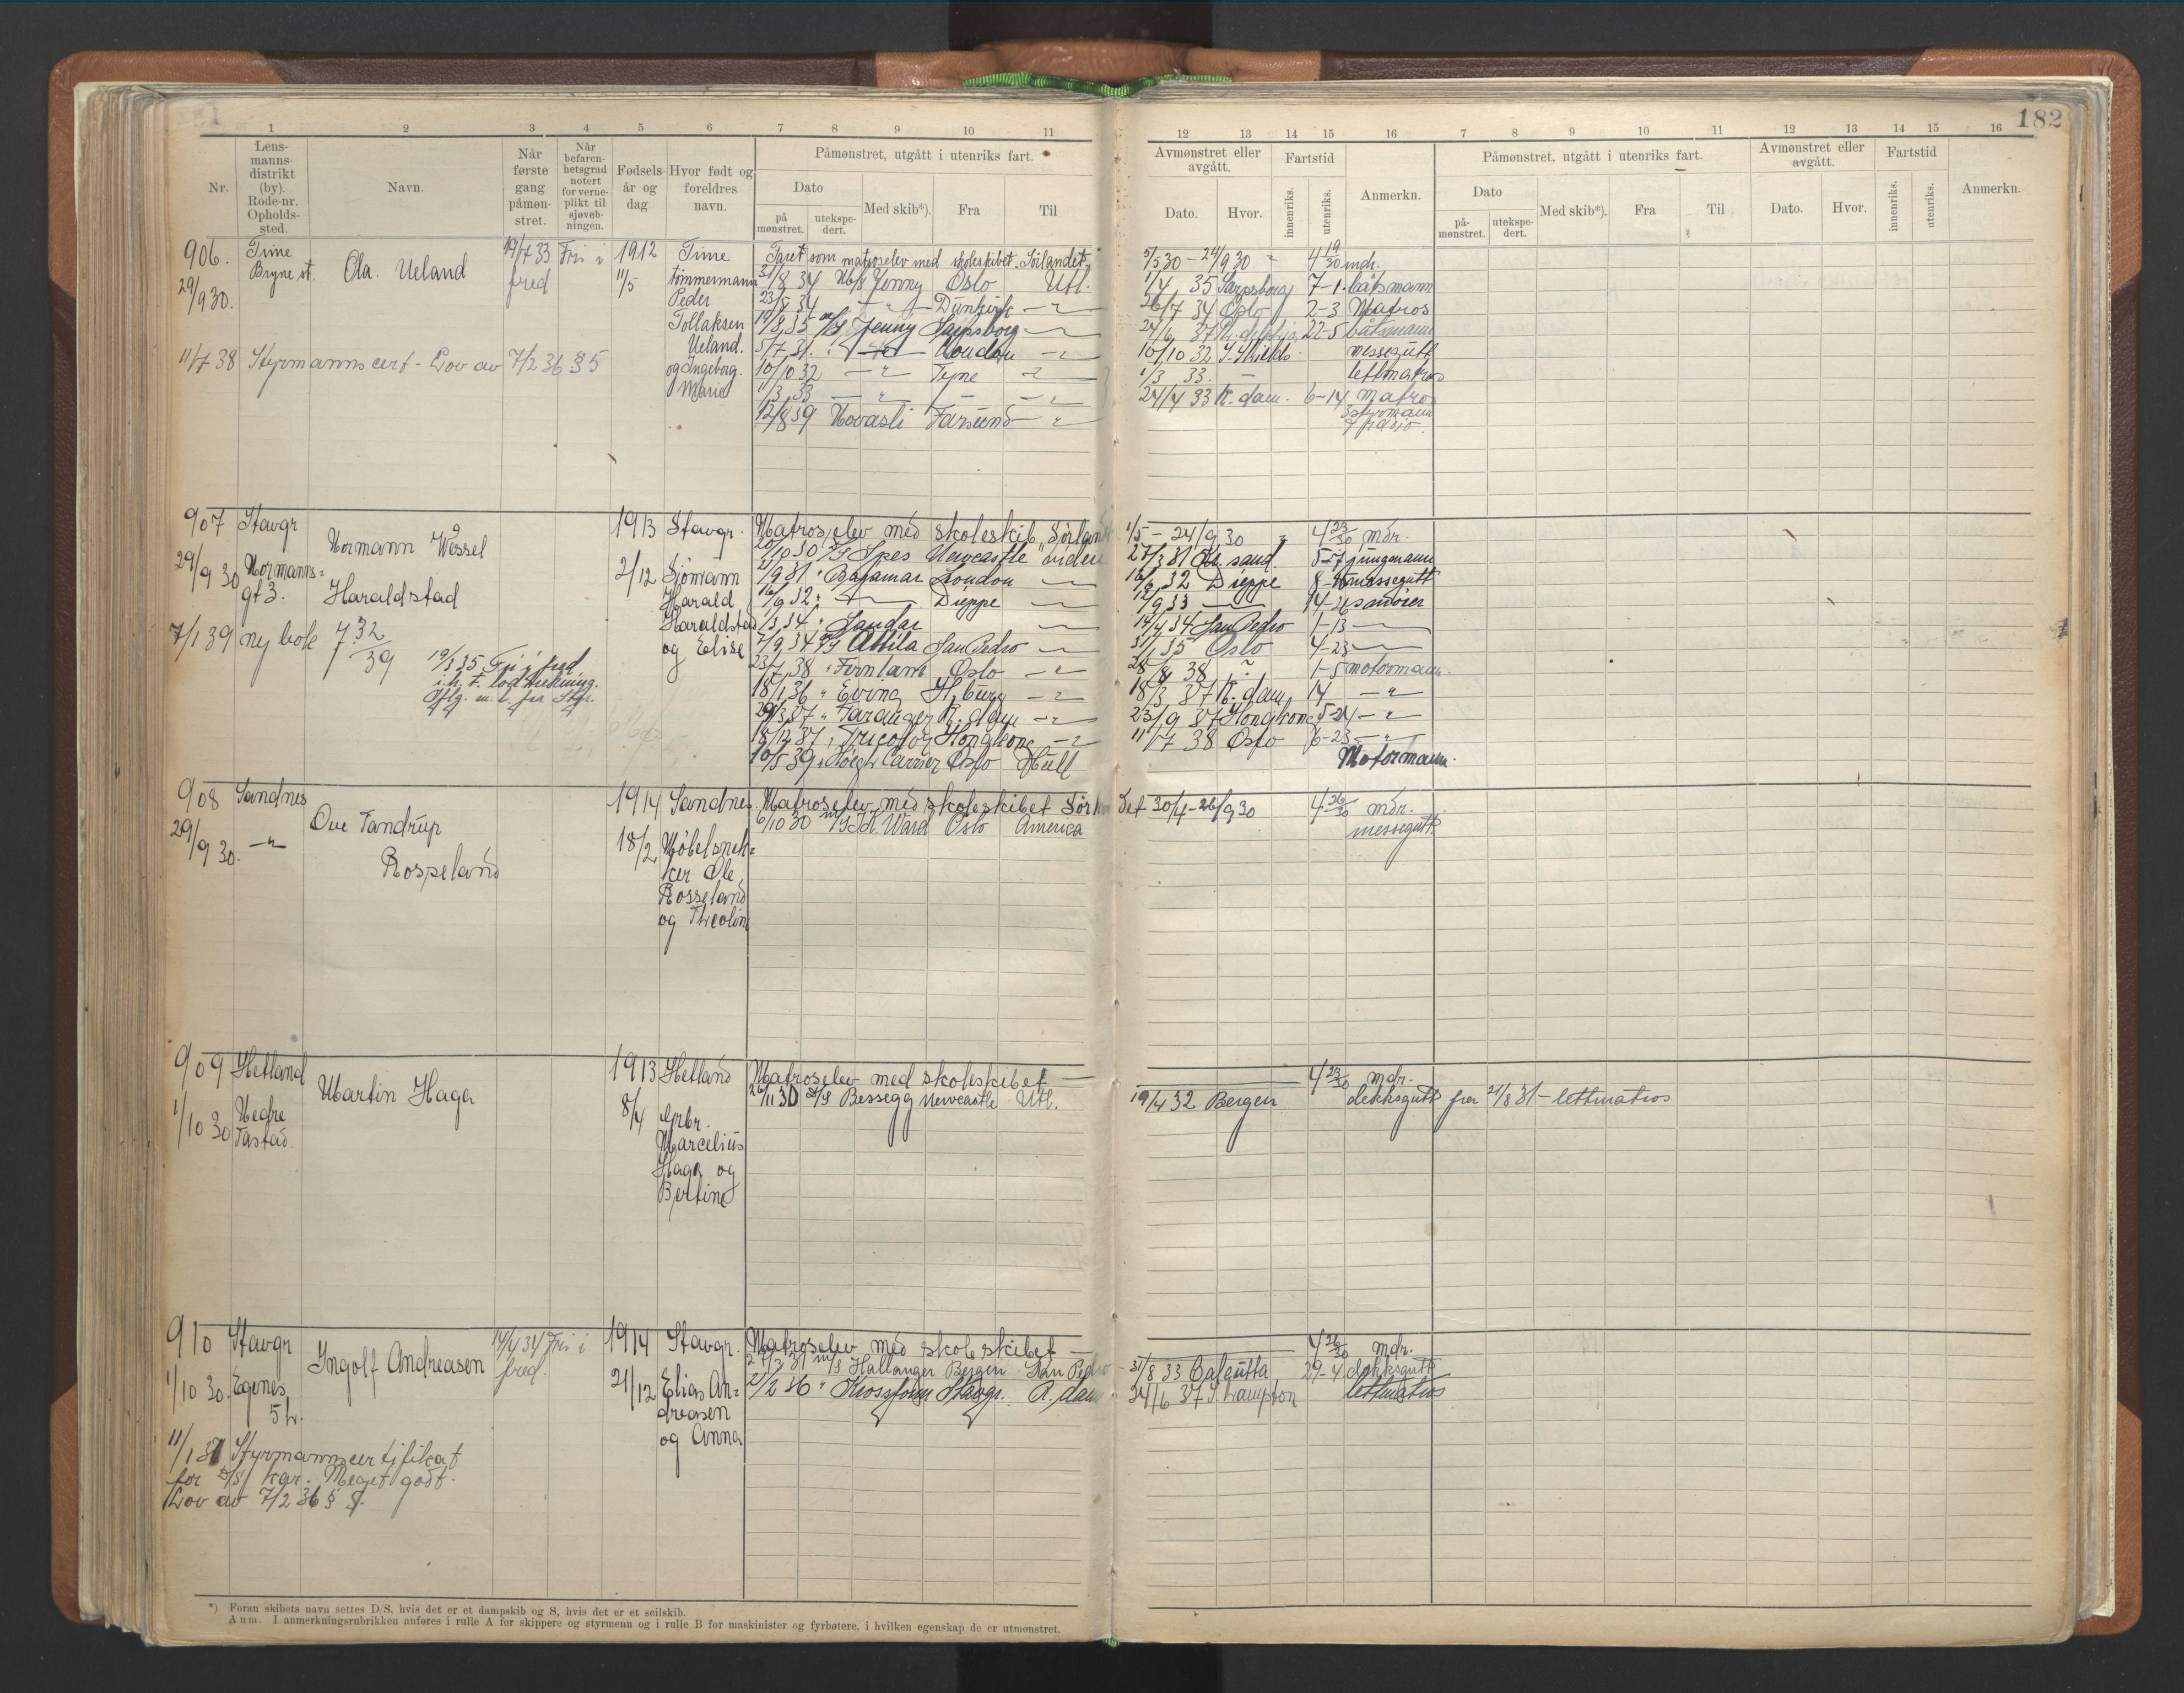 182
1 2 3 4 5 6 7 8 9 10 11
12 13 14 15 16 7 8 9 10 11 12 13 14 15 16
Nr.
Lens-
manns-
distrikt
(by).
Rode-nr.
Opholds-
sted.
Navn.
Når
første
gang
påmøn-
stret.
Når
befaren-
hetsgrad
notert
for verne-
plikt til
sjøveb-
ningen.
Fødsels-
år og
dag
Hvor født og
foreldres
navn.
Påmønstret, utgått i utenriks fart.
Dato
på
mønstret.
utekspe-
dert.
Med skib*).
Fra
Til
Avmønstret eller
avgått.
Dato.
Hvor.
Fartstid
innenriks.
utenriks.
Anmerkn.
Påmønstret, utgått i utenriks fart.
Dato
på-
mønstret.
utekspe-
dert.
Med skib*).
Fra
Til
Avmønstret eller
avgått.
Dato.
Hvor.
Fartstid
innenriks.
utenriks.
Anmerkn.
906.
29/9 30.
Time
Bryne st.
Ola. Ueland
19/7 33 Fri i
fred
1912
11/5
Time
tømmermann
Peder
Tollaksen
Ueland.
og Ingeborg
Marie
11/7 38 Styrmannscert - Lov av 7/2 36 § 5
Faret som matroselev med skoleskibet "Sørlandet" 5/5 30 - 24/9 30 " 4 19/30 mdr.
31/8 34 M/S Jenny Oslo Utl. 1/4 35 Sarpsborg 7-1 båtsmann
23/5 34 - " - Dünkirk - " - 26/7 34 Oslo 2-3 Matros
19/8 35 M/S Jenny Sarpsborg - " - 22-5 båtsmann
5/7 31. London - " - 10/10 32 S. Shields messegutt
10/10 32 - " - Tyne - " - 1/3 33. - lettmatros
1/3 33 - " - - " - 24/4 33 R.dam. 6-14 matros
12/8 39 Hovasli Farsund - " - 3 styrmann
907
29/9 30
Stavgr
Normanns=
gt 3.
Normann Wessel
Haraldstad
1913
2/12
Stavgr.
Sjømann
Harald
Haraldstad
og Elise
7/1 39 ny bok 732
39
19/3 35 Fri i fred
i.h.t. lodtrekning.
Matroselev med skoleskib. Sørlandet 1/5 - 24/9 30 " 4 23/30 mdr.
20/10 30 D/S Spes Newcastle videre 27/3 31 Kr. sand. 5-7 jungmann
2/9 31 " Bajamar London - 16/6 32 Dieppe messegutt
16/6 32 " - Dieppe - 12/9 33 - 14-26 smører
1/3 34 " Sandar - 14/4 34 San Pedro 1-13 -
7/9 34 M/S Attila San Pedro - 31/1 35 Oslo 4-23 -
23/7 38 " Fernlane Oslo - " 28/8 38 " 1-5 motormann
18/1 36 " Evina H.burg - " 18/3 37 R.dam 14 - "
29/3 37 " Taranger R.dam - " 23/9 37 Hongkong 5-24 - "
18/12 37 " Tricolor Hongkong - " 11/7 38 Oslo 6-23 - "
10/5 39 " Høegh Carrier Oslo Hull Motormann
908
29/9 30.
Sandnes
- " -
Ove Tandrup
Rospeland
1914
18/2
Sandnes.
Møbelsnek=
ker Ole
Rosseland
og Theoline
Matroselev med skoleskibet Sørlan det 30/4 - 26/9 30 4 26/30 mdr.
6/10 30 M/S J.K. Ward Oslo America messegutt
909
1/10 30
Hetland
Nedre
Tastad.
Martin Haga
1913
8/4
Hetland
Grbr.
Marcelius
Haga og
Bertine
Matroselev med skoleskibet - 4 23/30 mdr.
26/11 30 D/S Bessegg Newcastle Utl. 19/4 32 Bergen dekksgutt fra 21/8 31 - lettmatros
910
1/10 30.
Stavgr
Egenes
5 h.
Ingolf Andreasen
14/4 34 Fri i
fred.
1914
21/12
Stavgr.
Elias An=
dreasen
og Anna
11/1 37 Styrmannscertifikat
for D/S kar. Meget godt.
Lov av 7/2 36 § 5.
Matroselev med skoleskibet - 4 26/30 mdr.
27/3 31 M/S Hallanger Bergen San Pedro - 31/8 33 Calcutta 29-4 dekksgutt
2/2 36 " Krossfonn Stavgr. R.dam 24/6 37 S.hampton lettmatros
*) Foran skibets navn settes D/S, hvis det er et dampskib og S, hvis det er et seilskib.
Anm. I anmerkningsrubrikken anføres i rulle A for skippere og styrmenn og i rulle B for maskinister og fyrbøtere, i hvilken egenskap de er utmønstret.